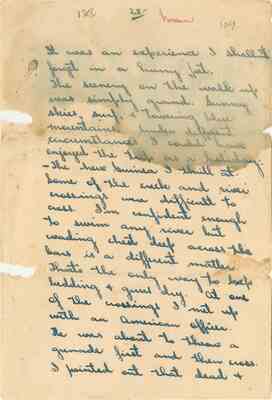 28
It was an experience I shan't
forget in a hurry, Pat.
The scenery on the walk up
was simply grand. Sunny
skies, surf, & towering blue
mountains. Under different
circumstances I could have
enjoyed the
some of the creek and river
crossings were difficult to
cross. I'm confident enough
to swim any river but
wading chest deep across the
bars is a different matter.
That's the only way to keep
bedding & gear dry. At one
of the crossings I met up
with an American officer.
He was about to throw a
grenade first and then cross.
I pointed out that dead &